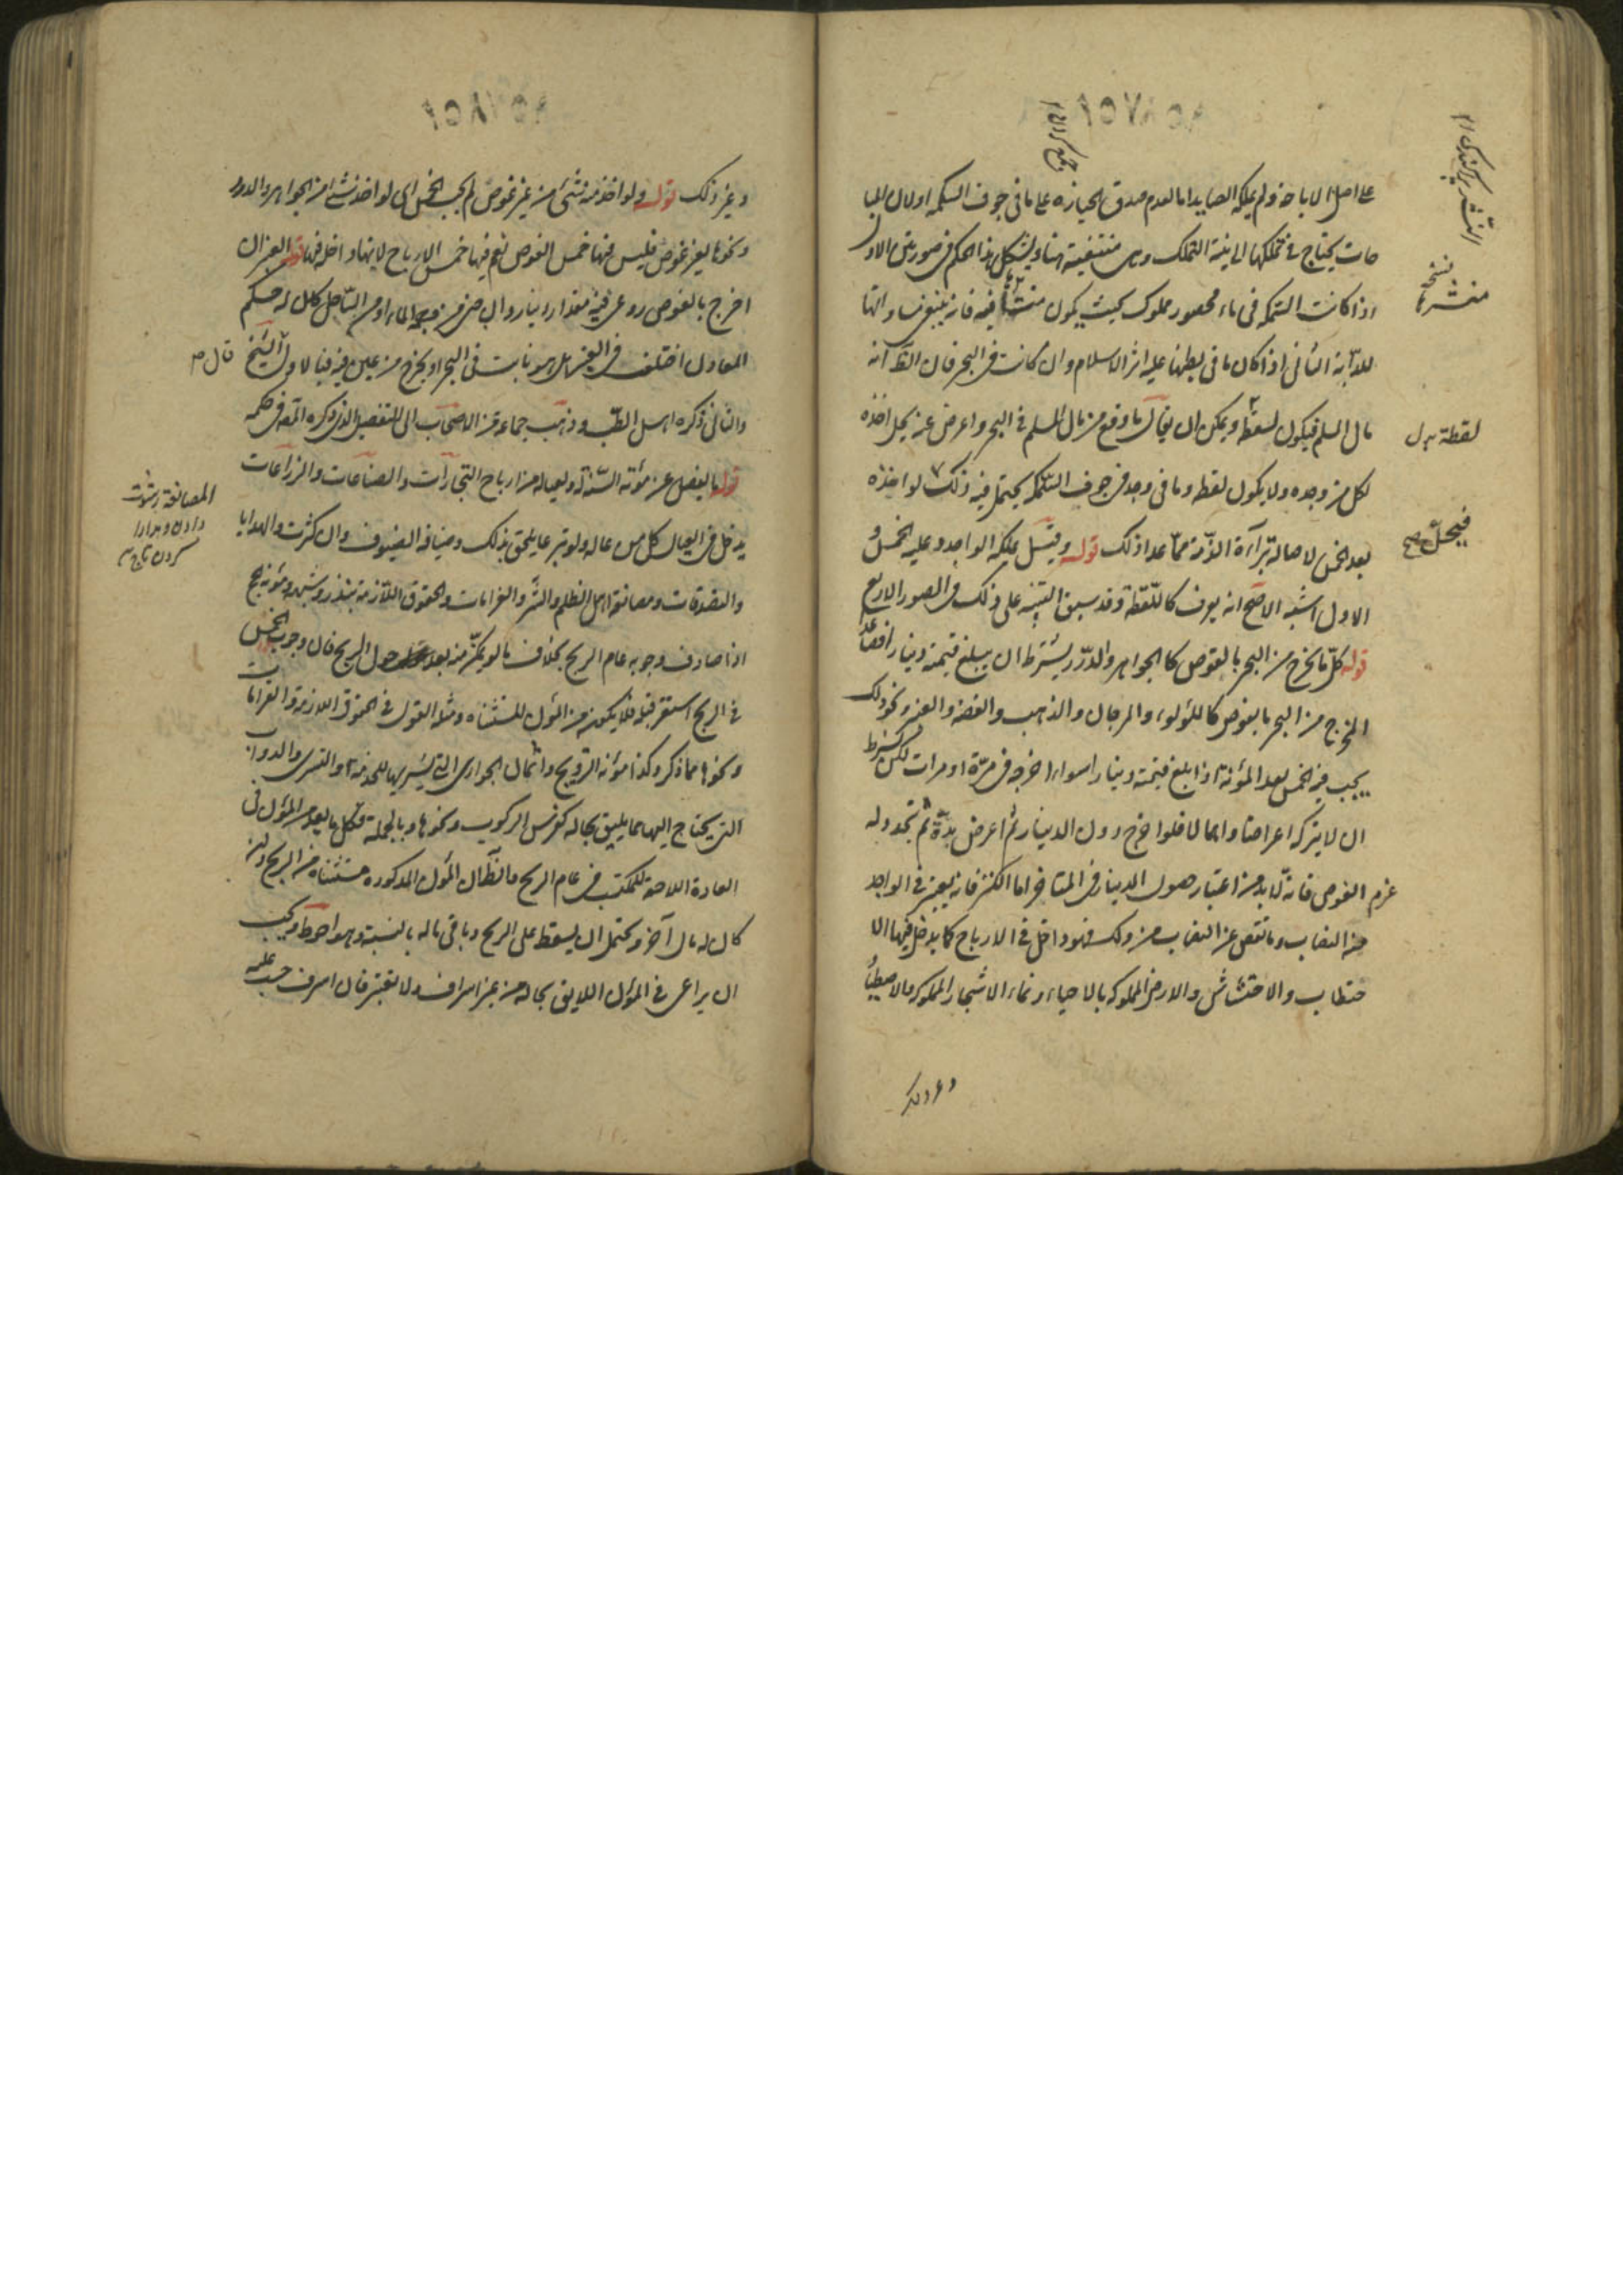 على اصل الاباحة ولم يملكه الصايد اما لعدم صدق الحيازة على ما في جوف السمكة او لان المبا
حات يحتاج في تملكها الى نية التملك وهي منتفية هنا ويشكل هذا الحكم في صورتين الاولى
اذا كانت السمكة في ماء محصور مملوك بحيث يكون منشأها فيه فانه ينبغي مساواتها
للدابة الثاني اذا كان ما في بطنها عليه اثر الاسلام وان كانت في البحر فان الظ انه
مال المسلم فيكون لقطة ويمكن ان يقال ما وقع من مال المسلم في البحر واعرض عنه يحل اخذه
لكل من وجده ولا يكون لقطة وما في وجد في جوف السمكة يحتمل فيه ذلك لو اخذه
بعد الخمس لاصالة براءة الذمة مما عدا ذلك قوله وقيل يملكه الواجد وعليه الخمس و
الاول اشبه الاصح انه يعرف كاللقطة وقد سبق التنبيه على ذلك في الصور الاربع
قوله كل ما يخرج من البحر بالغوص كالجواهر والدرر يشترط ان يبلغ قيمته دينارا فصاعدا
المخرج من البحر بالغوص كاللؤلؤ والمرجان والذهب والفضة والعنبر ونحو ذلك
يجب فيه الخمس بعد المؤنة اذا بلغ قيمته دينارا سواء اخرجه في مرة او مرات لكن بشرط
ان لا يتركه اعراضا واهمالا فلو اخرج دون الدينار ثم اعرض مدة ثم تجدد له
عزم الغوص فانه لا بد من اعتبار حصول الدينار في المتاخر اما الكنز فانه يعتبر في الواحد
منه النصاب وما نقص عن النصاب من ذلك فهو داخل في الارباح كما يدخل فيها الا
حتطاب والاحتشاش والارض المملوكة بالاحياء ونماء الاشجار المملوكة والاصطياد
وغير ذلك
منشأها نسخة
لقطة بدل
فيحل صح
وغير ذلك قوله ولو اخذ منه شئ من غير غوص لم يجب الخمس اي لو اخذ شئ من الجواهر والدرر
ونحوها بغير غوص فليس فيها خمس الغوص نعم فيها خمس الارباح لانها داخلة فيها قوله العنبر ان
اخرج بالغوص روعي فيه مقدار دينار وان جنى من وجه الماء او من الساحل كان له حكم
المعادن اختلف في العنبر هل هو نابت في البحر او يخرج من عين فيه فبالاول قال الشيخ
والثاني ذكره اهل الطب وذهب جماعة من الاصحاب الى التفصيل الذي ذكره المصـ في حكمه
قوله ما يفضل عن مؤنة السنة له ولعياله من ارباح التجارات والصناعات والزراعات
يدخل في العيال كل من عاله ولو تبرعا يلحق بذلك وضيافة الضيوف وان كثرت والهدايا
والصدقات ومصانعة اهل الظلم والشر والغرامات والحقوق اللازمة بنذر وشبهه ومؤنة حج
اذا صادف وجوبه عام الربح بخلاف ما لو تمكن منه بعد حول الربح فان وجوب الخمس
في الربح استقر قبله فلا يكون من المؤن المستثناة ومثله القول في الحقوق اللازمة والغرامات
ونحوها مما ذكر وكذا مؤنة التزويج واثمان الجواري التي يشتريها للخدمة والتسري والدواب
التي يحتاج اليها مما يليق بحاله كفرس الركوب ونحوها وبالجملة فكل ما يعد من المؤن في
العادة اللاحقة للمكتسب في عام الربح والظ ان المؤن المذكورة مستثناة من الربح وان
كان له مال آخر ويحتمل ان يسقط على الربح وباقي ماله بالنسبة وهو احوط ويجب
ان يراعى في المؤن اللايق بحاله من غير اسراف ولا تقتير فان اسرف حسب عليه
المصانعة رشوت
دادن ومدارا
كردن تاج م